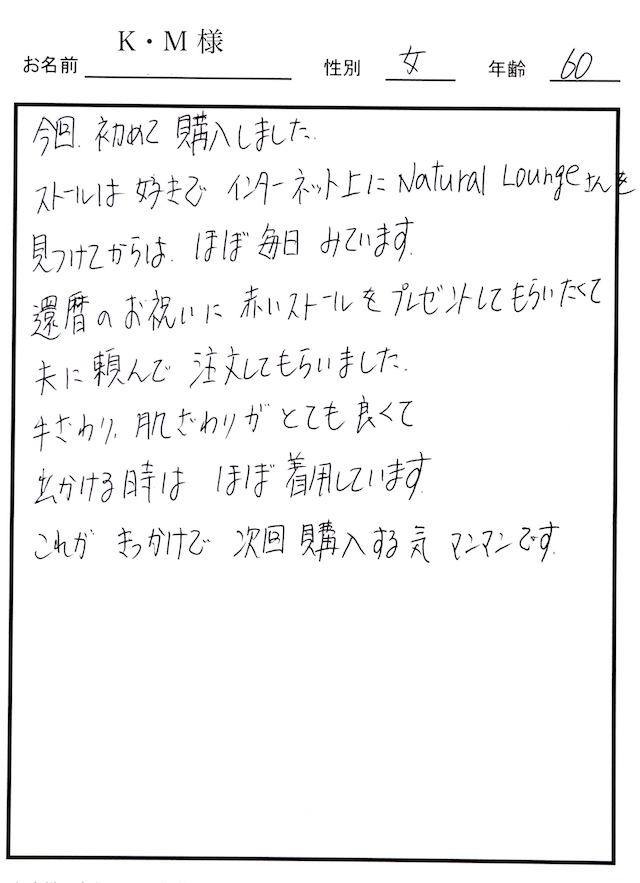 K・M 様
お名前 性別 女 年齢 60
今回、初めて 購入しました.
ストールは 好きで インターネット上に Natural Loungeさんを
見つけてからは、ほぼ毎日 みています.
還暦のお祝いに 赤いストールをプレゼントしてもらいたくて
夫に頼んで 注文してもらいました.
手ざわり、肌ざわりが とても良くて
出かける時は ほぼ着用しています.
これが きっかけで 次回購入する気 マンマンです.